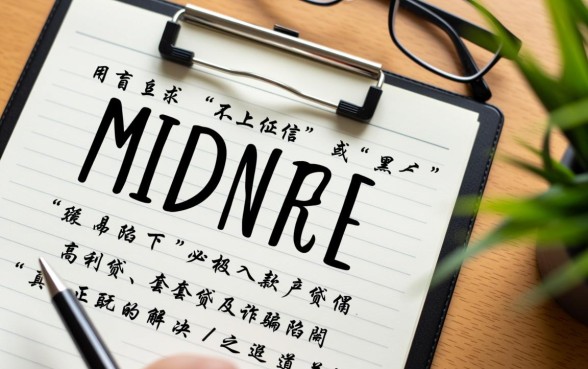 用盲求“不上征信”或“黑户”
MIDNRE
“易陷下”必极入款产贷
高利贷、套套贷及诈骗陷
“真正的解决/之追道